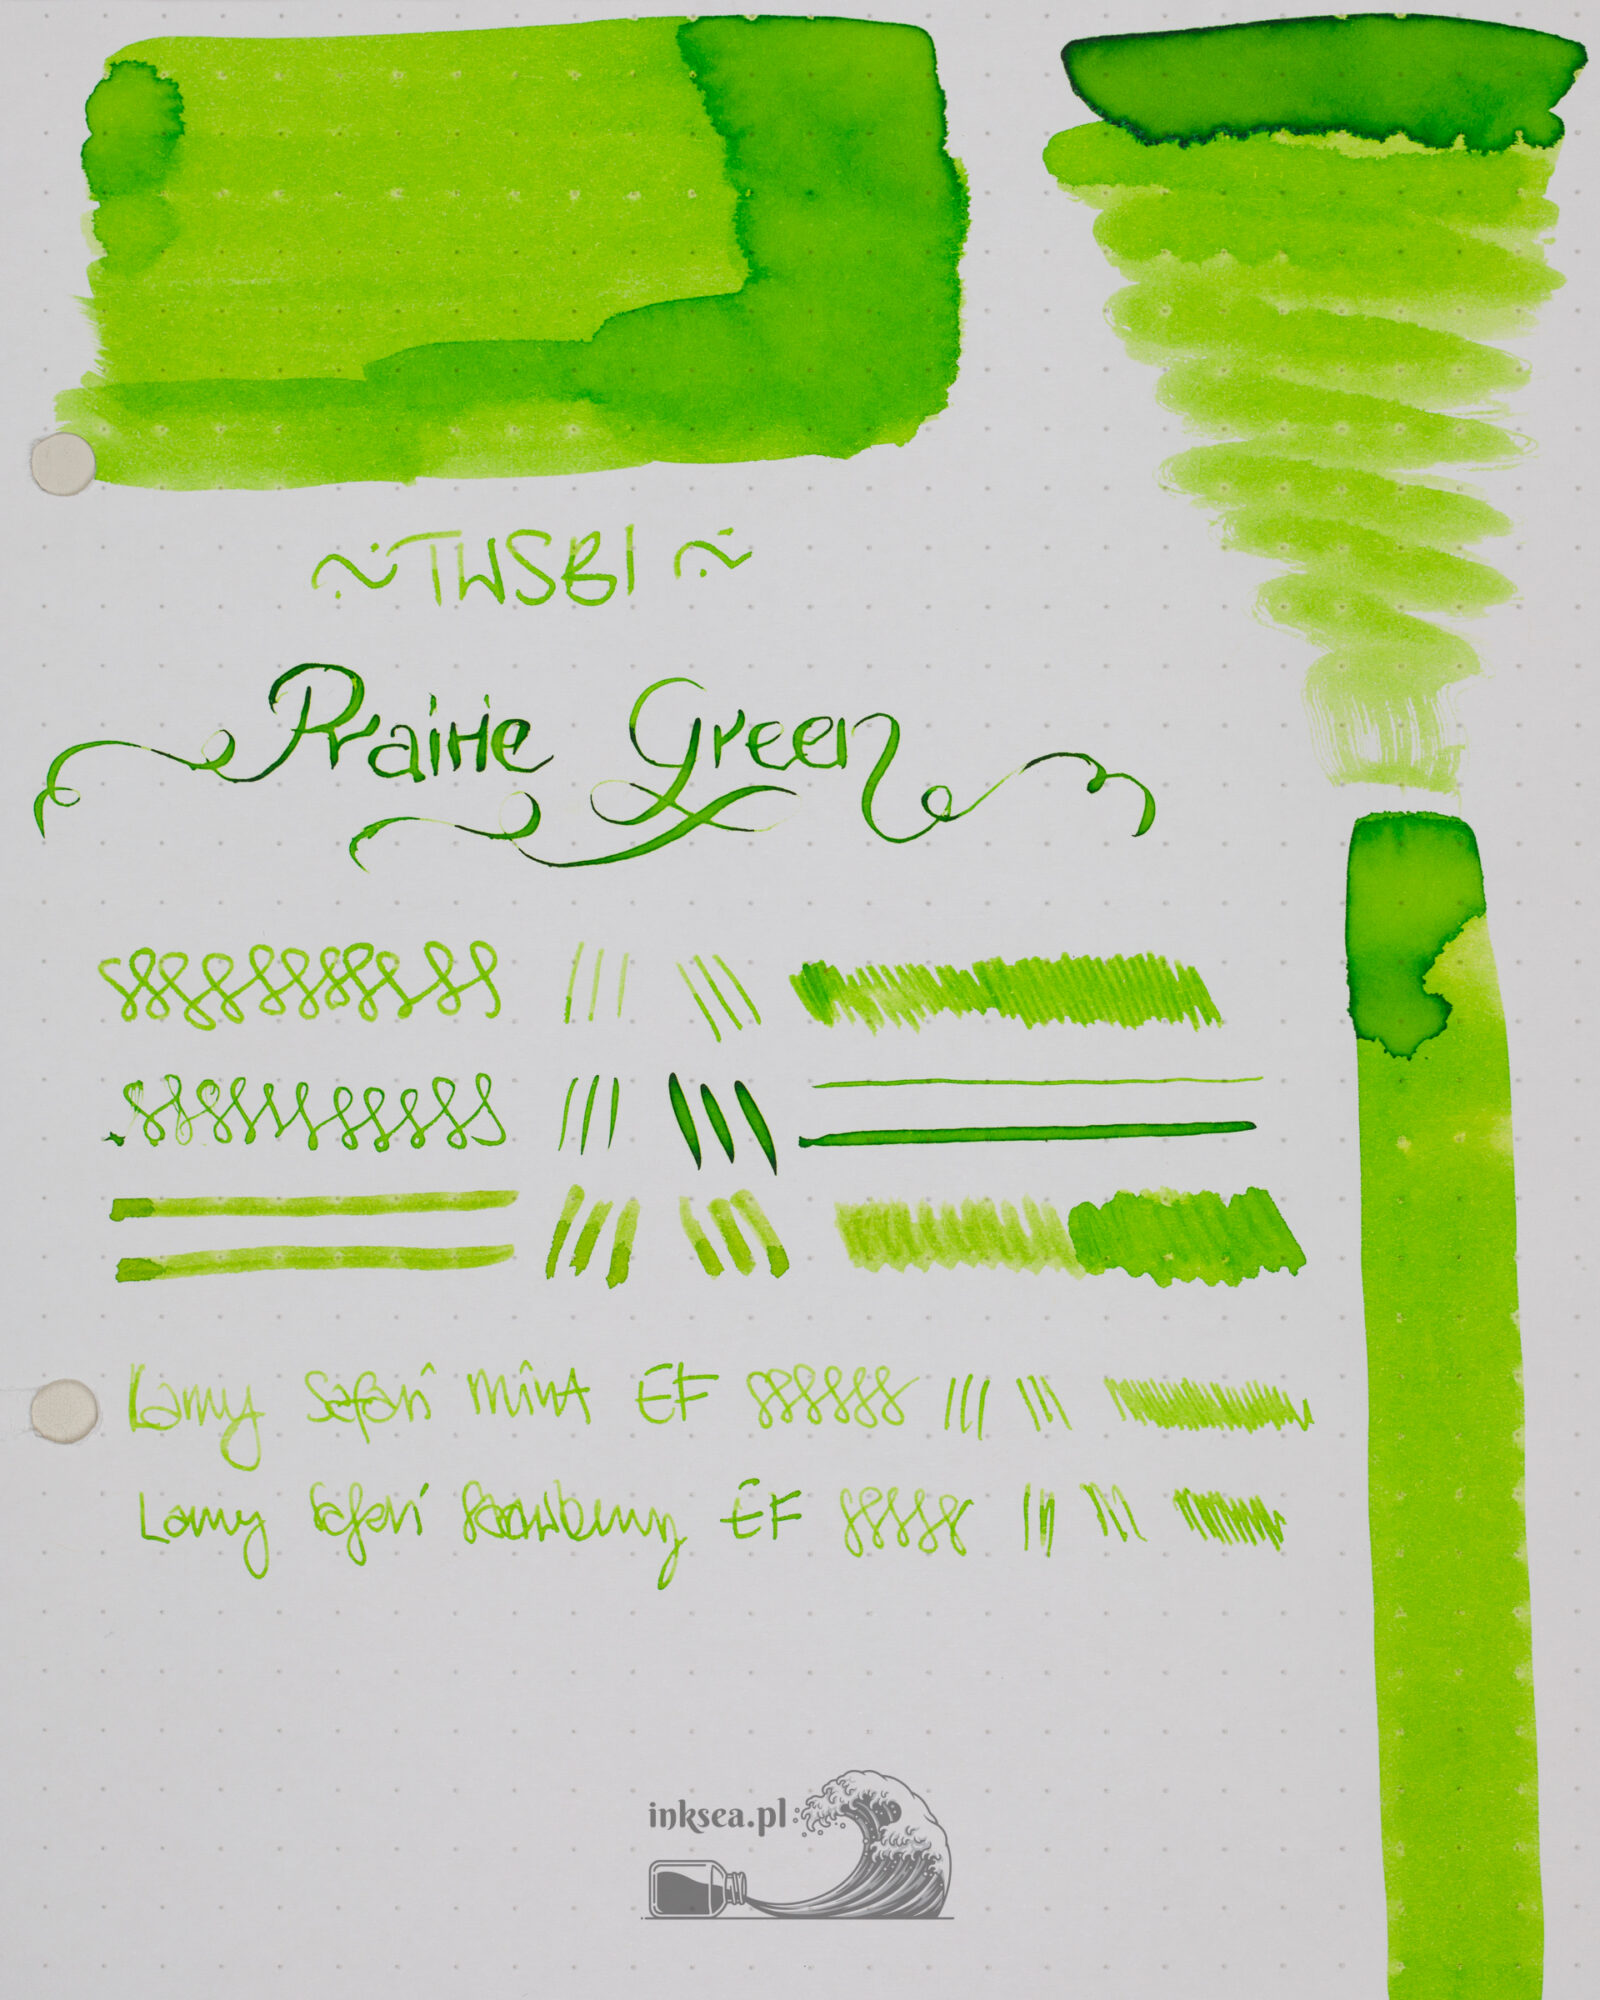 ~TWSBI~
Prairie Green
Lamy Safari Mint EF
Lamy Safari Strawberry EF
inksea.pl